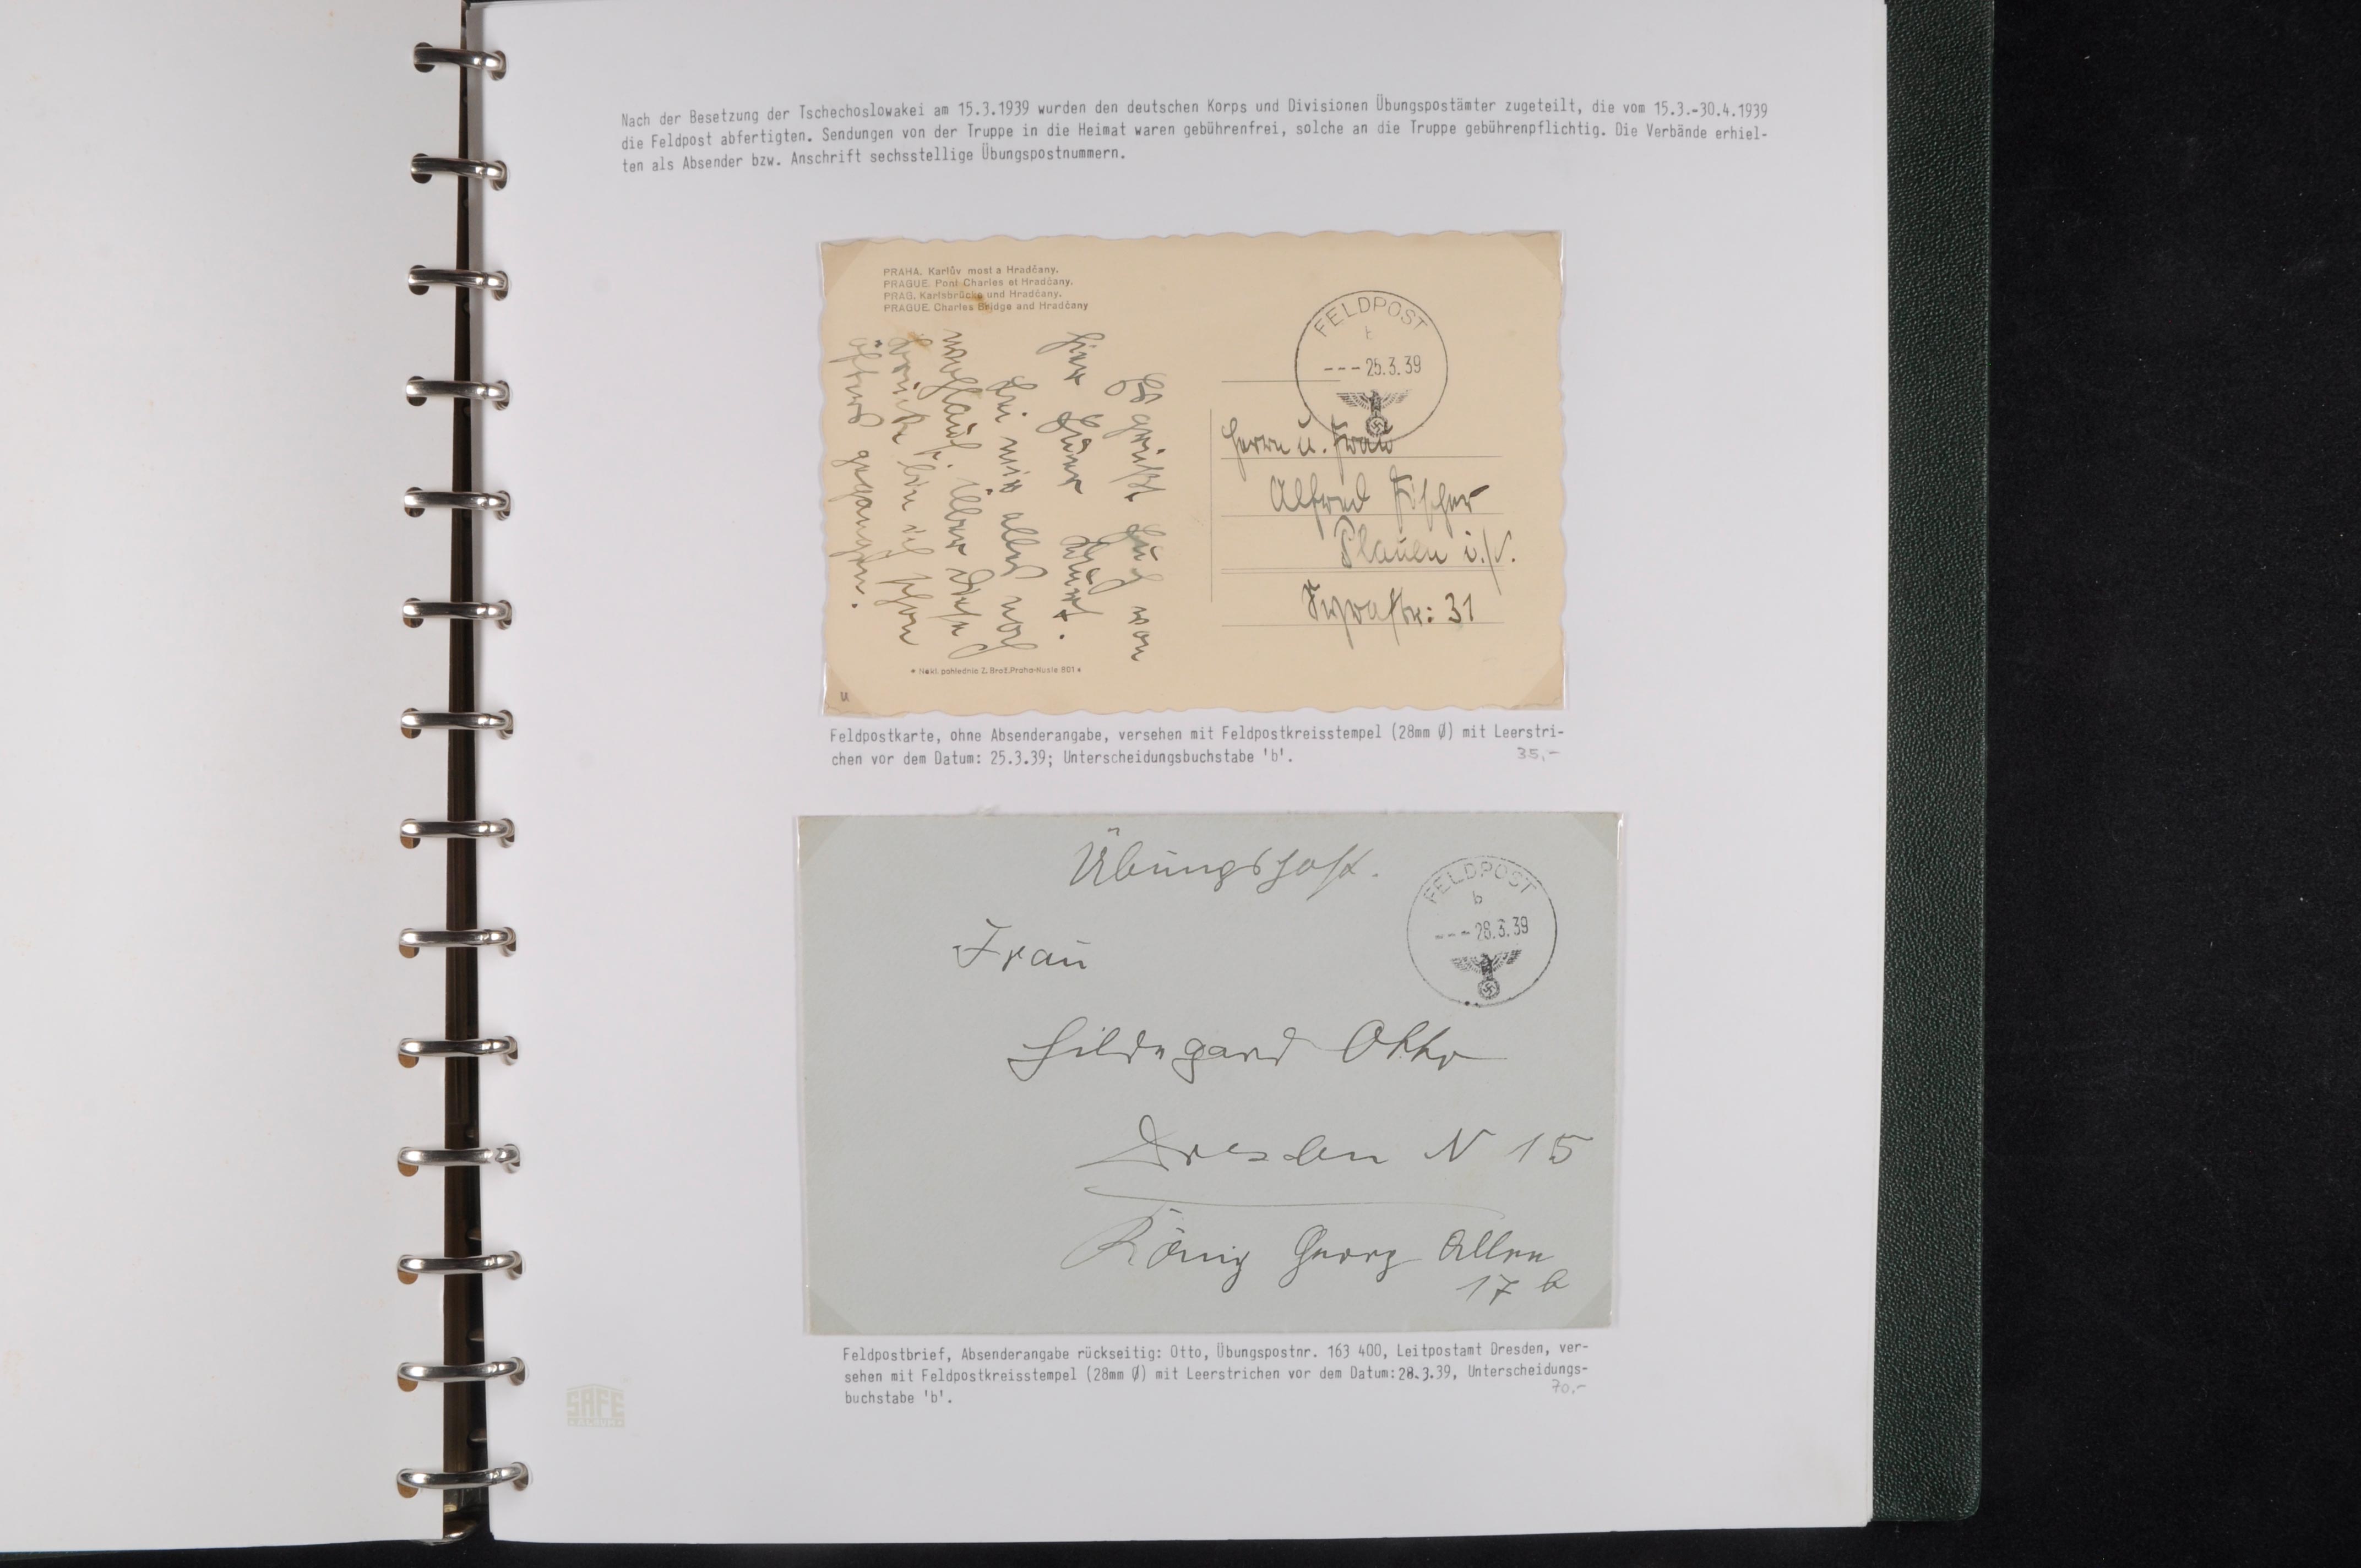 Nach der Besetzung der Tschechoslowakei am 15.3.1939 wurden den deutschen Korps und Divisionen Übungspostämter zugeteilt, die vom 15.3.-30.4.1939
die Feldpost abfertigten. Sendungen von der Truppe in die Heimat waren gebührenfrei, solche an die Truppe gebührenpflichtig. Die Verbände erhiel-
ten als Absender bzw. Anschrift sechsstellige Übungspostnummern.
PRAHA. Karlův most a Hradčany.
PRAGUE. Pont Charles et Hradčany.
PRAG. Karlsbrücke und Hradčany.
PRAGUE. Charles Bridge and Hradčany
FELDPOST
b
--- 25.3.39
Es grüßt Euch von
hier Euer
Bei mir alles noch
wohlauf. Über diese
Brücke bin ich schon
öfters gegangen.
Herrn u. Frau
Alfred Fischer
Plauen i./V.
31
* Nakl. pohlednic Z. Brož, Praha-Nusle 801 *
Feldpostkarte, ohne Absenderangabe, versehen mit Feldpostkreisstempel (28mm Ø) mit Leerstri-
chen vor dem Datum: 25.3.39; Unterscheidungsbuchstabe 'b'.
35,-
Übungspost.
FELDPOST
b
--- 28.3.39
Frau
Hildegard Otto
Dresden N 15
König Georg Allee
17 b
Feldpostbrief, Absenderangabe rückseitig: Otto, Übungspostnr. 163 400, Leitpostamt Dresden, ver-
sehen mit Feldpostkreisstempel (28mm Ø) mit Leerstrichen vor dem Datum:28.3.39, Unterscheidungs-
buchstabe 'b'.
70,-
SAFE